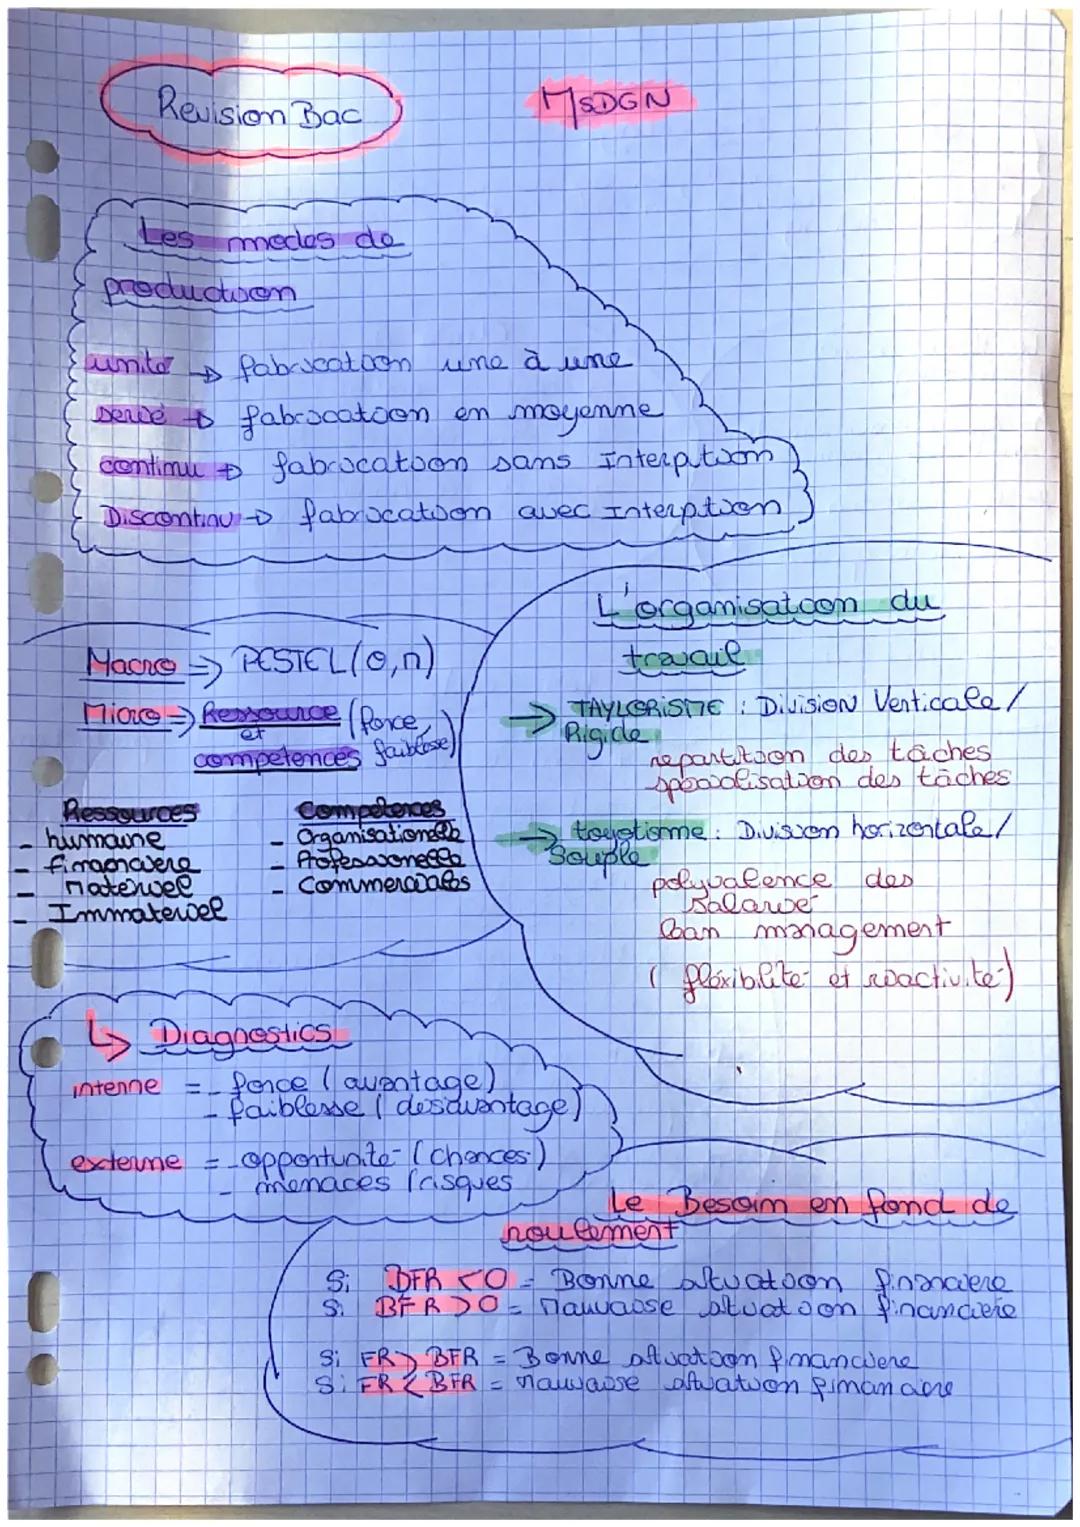 Revision Bac
MSDGN
Les modes de
production
unité → fabrication une à une
série → fabrication en moyenne
continu → fabrication sans Interption
Discontinu → fabrication avec Interption
Macro => PESTEL (O,n)
Micro => Ressource (force,
et
competences faiblesse)
Ressources
- humaine
- financiere
- materiel
- Immateriel
Competences
- Organisationelle
- Professionelle
- Commerciales
L'organisation du
travail
→ TAYLORISME : Division Verticale /
Rigide
repartition des tâches
spécialisation des tâches
→ toyotisme : Division horizontale /
Souple
polyvalence des
salarié
lean management
( fléxibilité et réactivité)
↳ Diagnostics
interne = - force (avantage)
- faiblesse (desavantage)
externe = - opportunité (chances)
- menaces (risques
Le Besoin en fond de
roulement
Si BFR <0 = Bonne situation financiere
Si BFR >0 = Mauvaise situation financiere
Si FR > BFR = Bonne situation financiere
Si FR < BFR = Mauvaise situation financiere